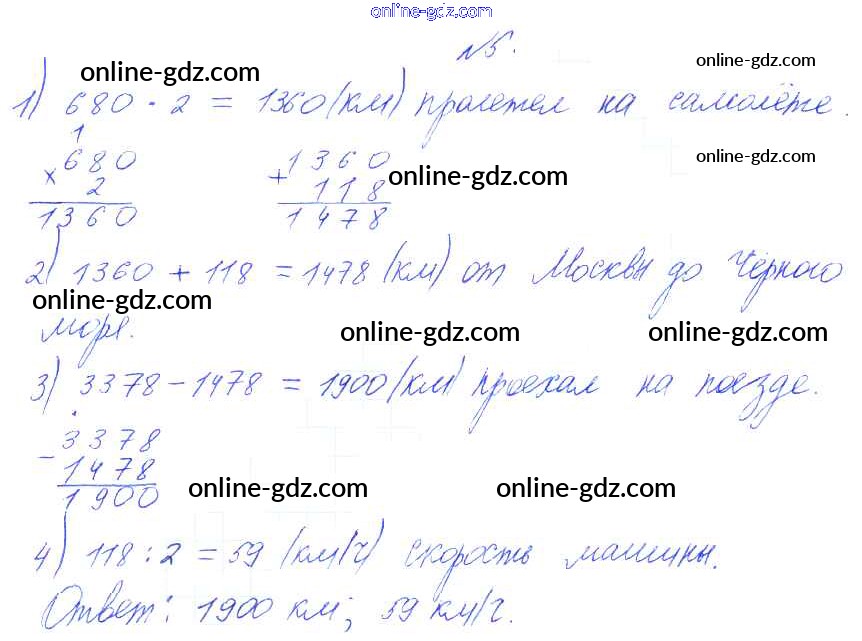 online-gdz.com
№5.
online-gdz.com online-gdz.com
1) 680 · 2 = 1360 (км) пролетел на самолёте.
1
× 680
2
1360
+ 1360
118
1478
online-gdz.com online-gdz.com
2) 1360 + 118 = 1478 (км) от Москвы до Чёрного
online-gdz.com
моря.
online-gdz.com online-gdz.com
3) 3378 - 1478 = 1900 (км) проехал на поезде.
- 3378
1478
1900
online-gdz.com online-gdz.com
4) 118 : 2 = 59 (км/ч) скорость машины.
Ответ: 1900 км; 59 км/ч.